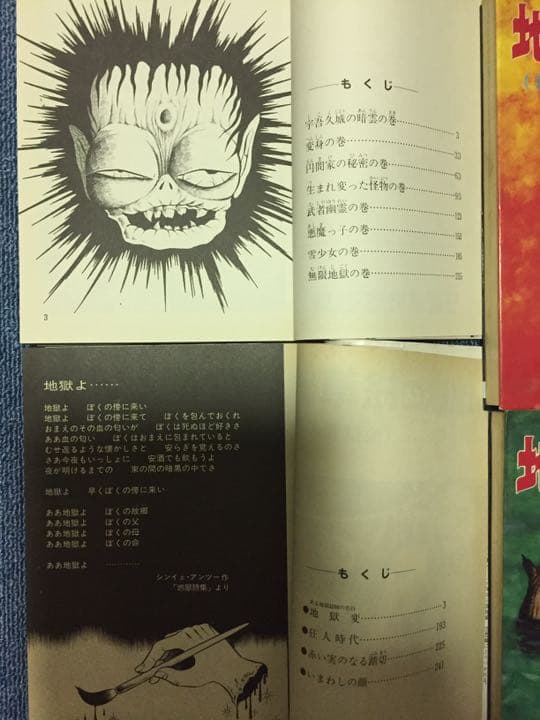 もくじ
宇吾久城の暗雲の巻 3
変身の巻 33
円間家の秘密の巻 63
生まれ変った怪物の巻 93
武者幽霊の巻 121
悪魔っ子の巻
雪少女の巻
無限地獄の巻
3
地獄よ……
地獄よ ぼくの傍に来い
地獄よ ぼくの傍に来て ぼくを包んでおくれ
おまえのその血の匂いが ぼくは死ぬほど好きさ
ああ血の匂い ぼくはおまえに包まれていると
むせ返るような懐かしさと 安らぎを覚えるのさ
さあ今夜もいっしょに 安酒でも飲もうよ
夜が明けるまでの 束の間の暗黒の中でさ
地獄よ 早くぼくの傍に来い
ああ地獄よ ぼくの故郷
ああ地獄よ ぼくの父
ああ地獄よ ぼくの母
ああ地獄よ ぼくの命
ああ地獄よ …………
シンイェ・アンツー作
「地獄詩集」より
もくじ
●地獄変 3
●狂人時代 193
●赤い実のなる踏切 225
●いまわしの顔 241
地
地